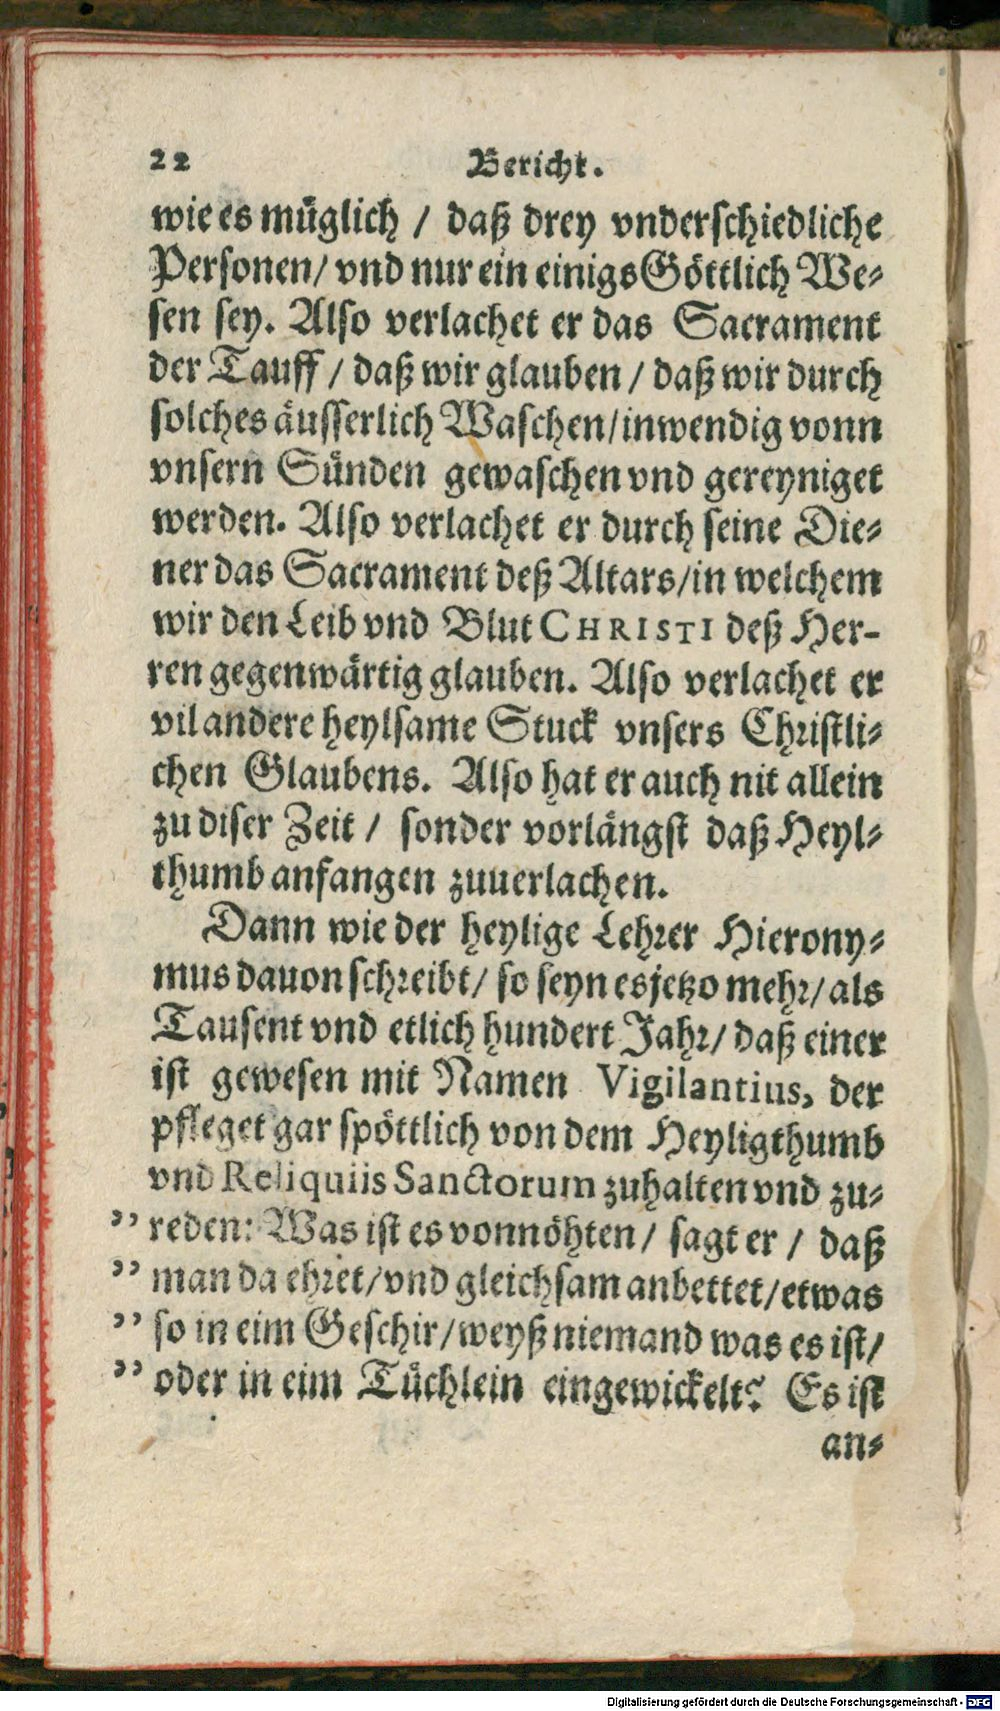 22 Bericht.
wie es müglich / daß drey vnderschiedliche
Personen/ vnd nur ein einigs Göttlich We-
sen sey. Also verlachet er das Sacrament
der Tauff / daß wir glauben / daß wir durch
solches äusserlich Waschen/inwendig vonn
vnsern Sünden gewaschen vnd gereyniget
werden. Also verlachet er durch seine Die-
ner das Sacrament deß Altars/in welchem
wir den Leib vnd Blut CHRISTI deß Her-
ren gegenwärtig glauben. Also verlachet er
vil andere heylsame Stuck vnsers Christli-
chen Glaubens. Also hat er auch nit allein
zu diser Zeit / sonder vorlängst daß Heyl-
thumb anfangen zuuerlachen.
Dann wie der heylige Lehrer Hierony-
mus dauon schreibt/ so seyn es jetzo mehr/ als
Tausent vnd etlich hundert Jahr/ daß einer
ist gewesen mit Namen Vigilantius, der
pfleget gar spöttlich von dem Heyligthumb
vnd Reliquiis Sanctorum zuhalten vnd zu-
" reden: Was ist es vonnöhten / sagt er / daß
" man da ehret/vnd gleichsam anbettet/etwas
" so in eim Geschir/weyß niemand was es ist/
" oder in eim Tüchlein eingewickelt? Es ist
an-
Digitalisierung gefördert durch die Deutsche Forschungsgemeinschaft - DFG